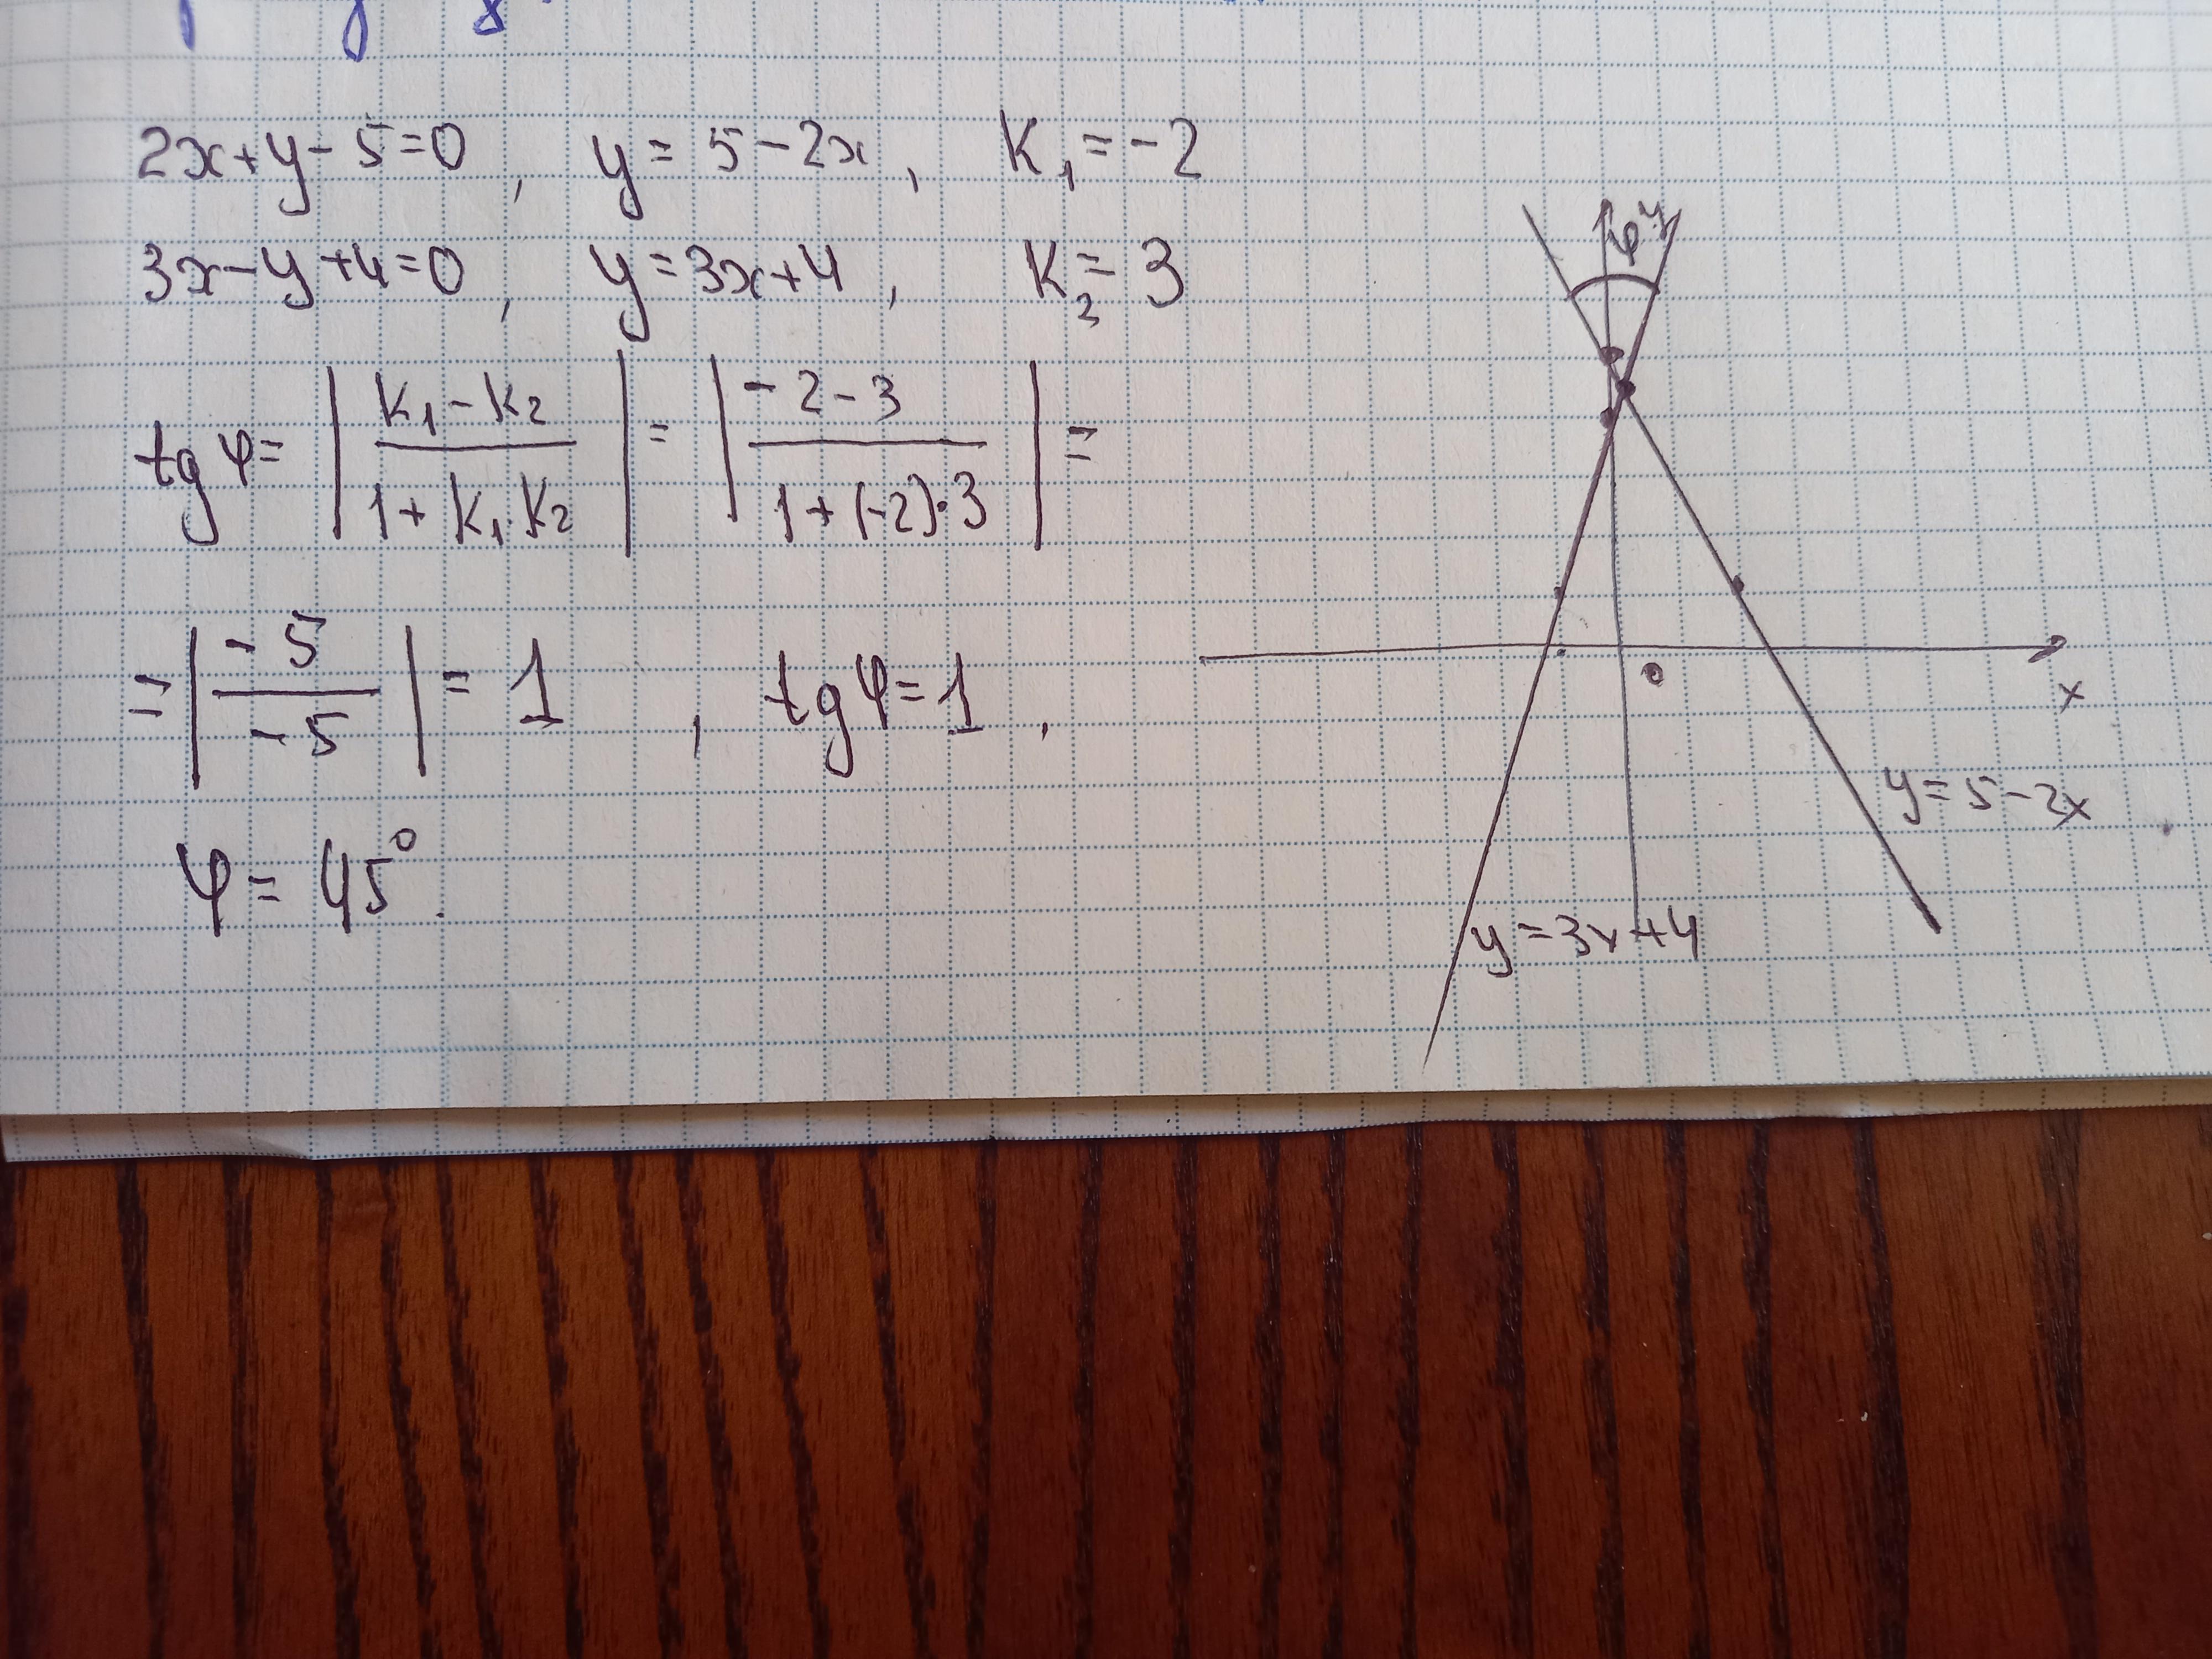 2x+y-5=0, y=5-2x, K₁=-2
3x-y+4=0, y=3x+4, K₂=3
tg φ= |K₁-K₂ / 1+K₁·K₂| = |-2-3 / 1+(-2)·3| =
=|-5 / -5| = 1, tg φ=1,
φ=45°.
φ y
0
x
y=5-2x
y=3x+4